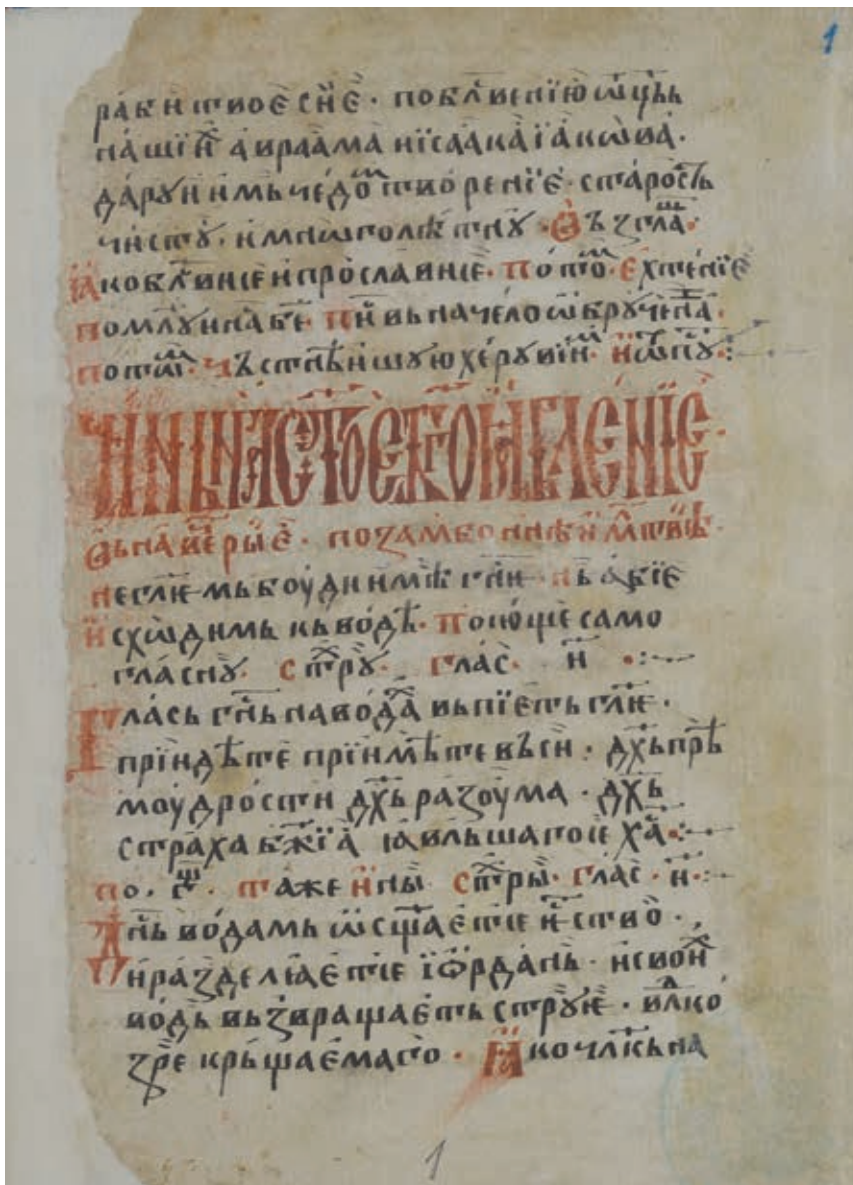 1
раби твоѐ сїѐ · по блⷭ҇венїю ѡц҃ь
нашиⷯ авраама иїсаака їакѡва ·
даруи имь чедоⷮ творенїе · старѡⷭ҇ть
чисту · и мнѡголѣтну · възглаⷭ҇ ·
ꙗко блⷭ҇висе и прослависе · по тоⷨ · ехтенїе
помлⷭ҇уи на бж҃е
потоⷨ · чъстнѣишую херувиⷨ ·
чинь на ст҃ое бг҃оꙗвленїе
вь на веⷱ҇рые · по заамбоннѣи млⷭ҇твѣ ·
не гл҃ѥмь буди имѣ гн҃ѥ · нь абїе
исхѡдимь кь водѣ · поюще само
гласну · стⷯру · глаⷭ҇ · и҃ ·:
Глась гн҃ь на водаⷯ вьпїеть гл҃ѥ ·
прїидѣте прїимѣте въси · дх҃ь прѣ
моудрости дх҃ь разоума · дх҃ь
страха бж҃їа ꙗвльшагосе хⷭ҇а ·:
таже ины стⷯры · глаⷭ҇ · и҃ ·:
Дн҃ь водамь ѡсщ҃аетсе ѥⷭ҇ство ·
и разделꙗетсе їѡрдань · и своиⷯ
водь вьзвращаеть струѥ · влⷣко
зре крьщаемаго · ꙗко чл҃кь на
1